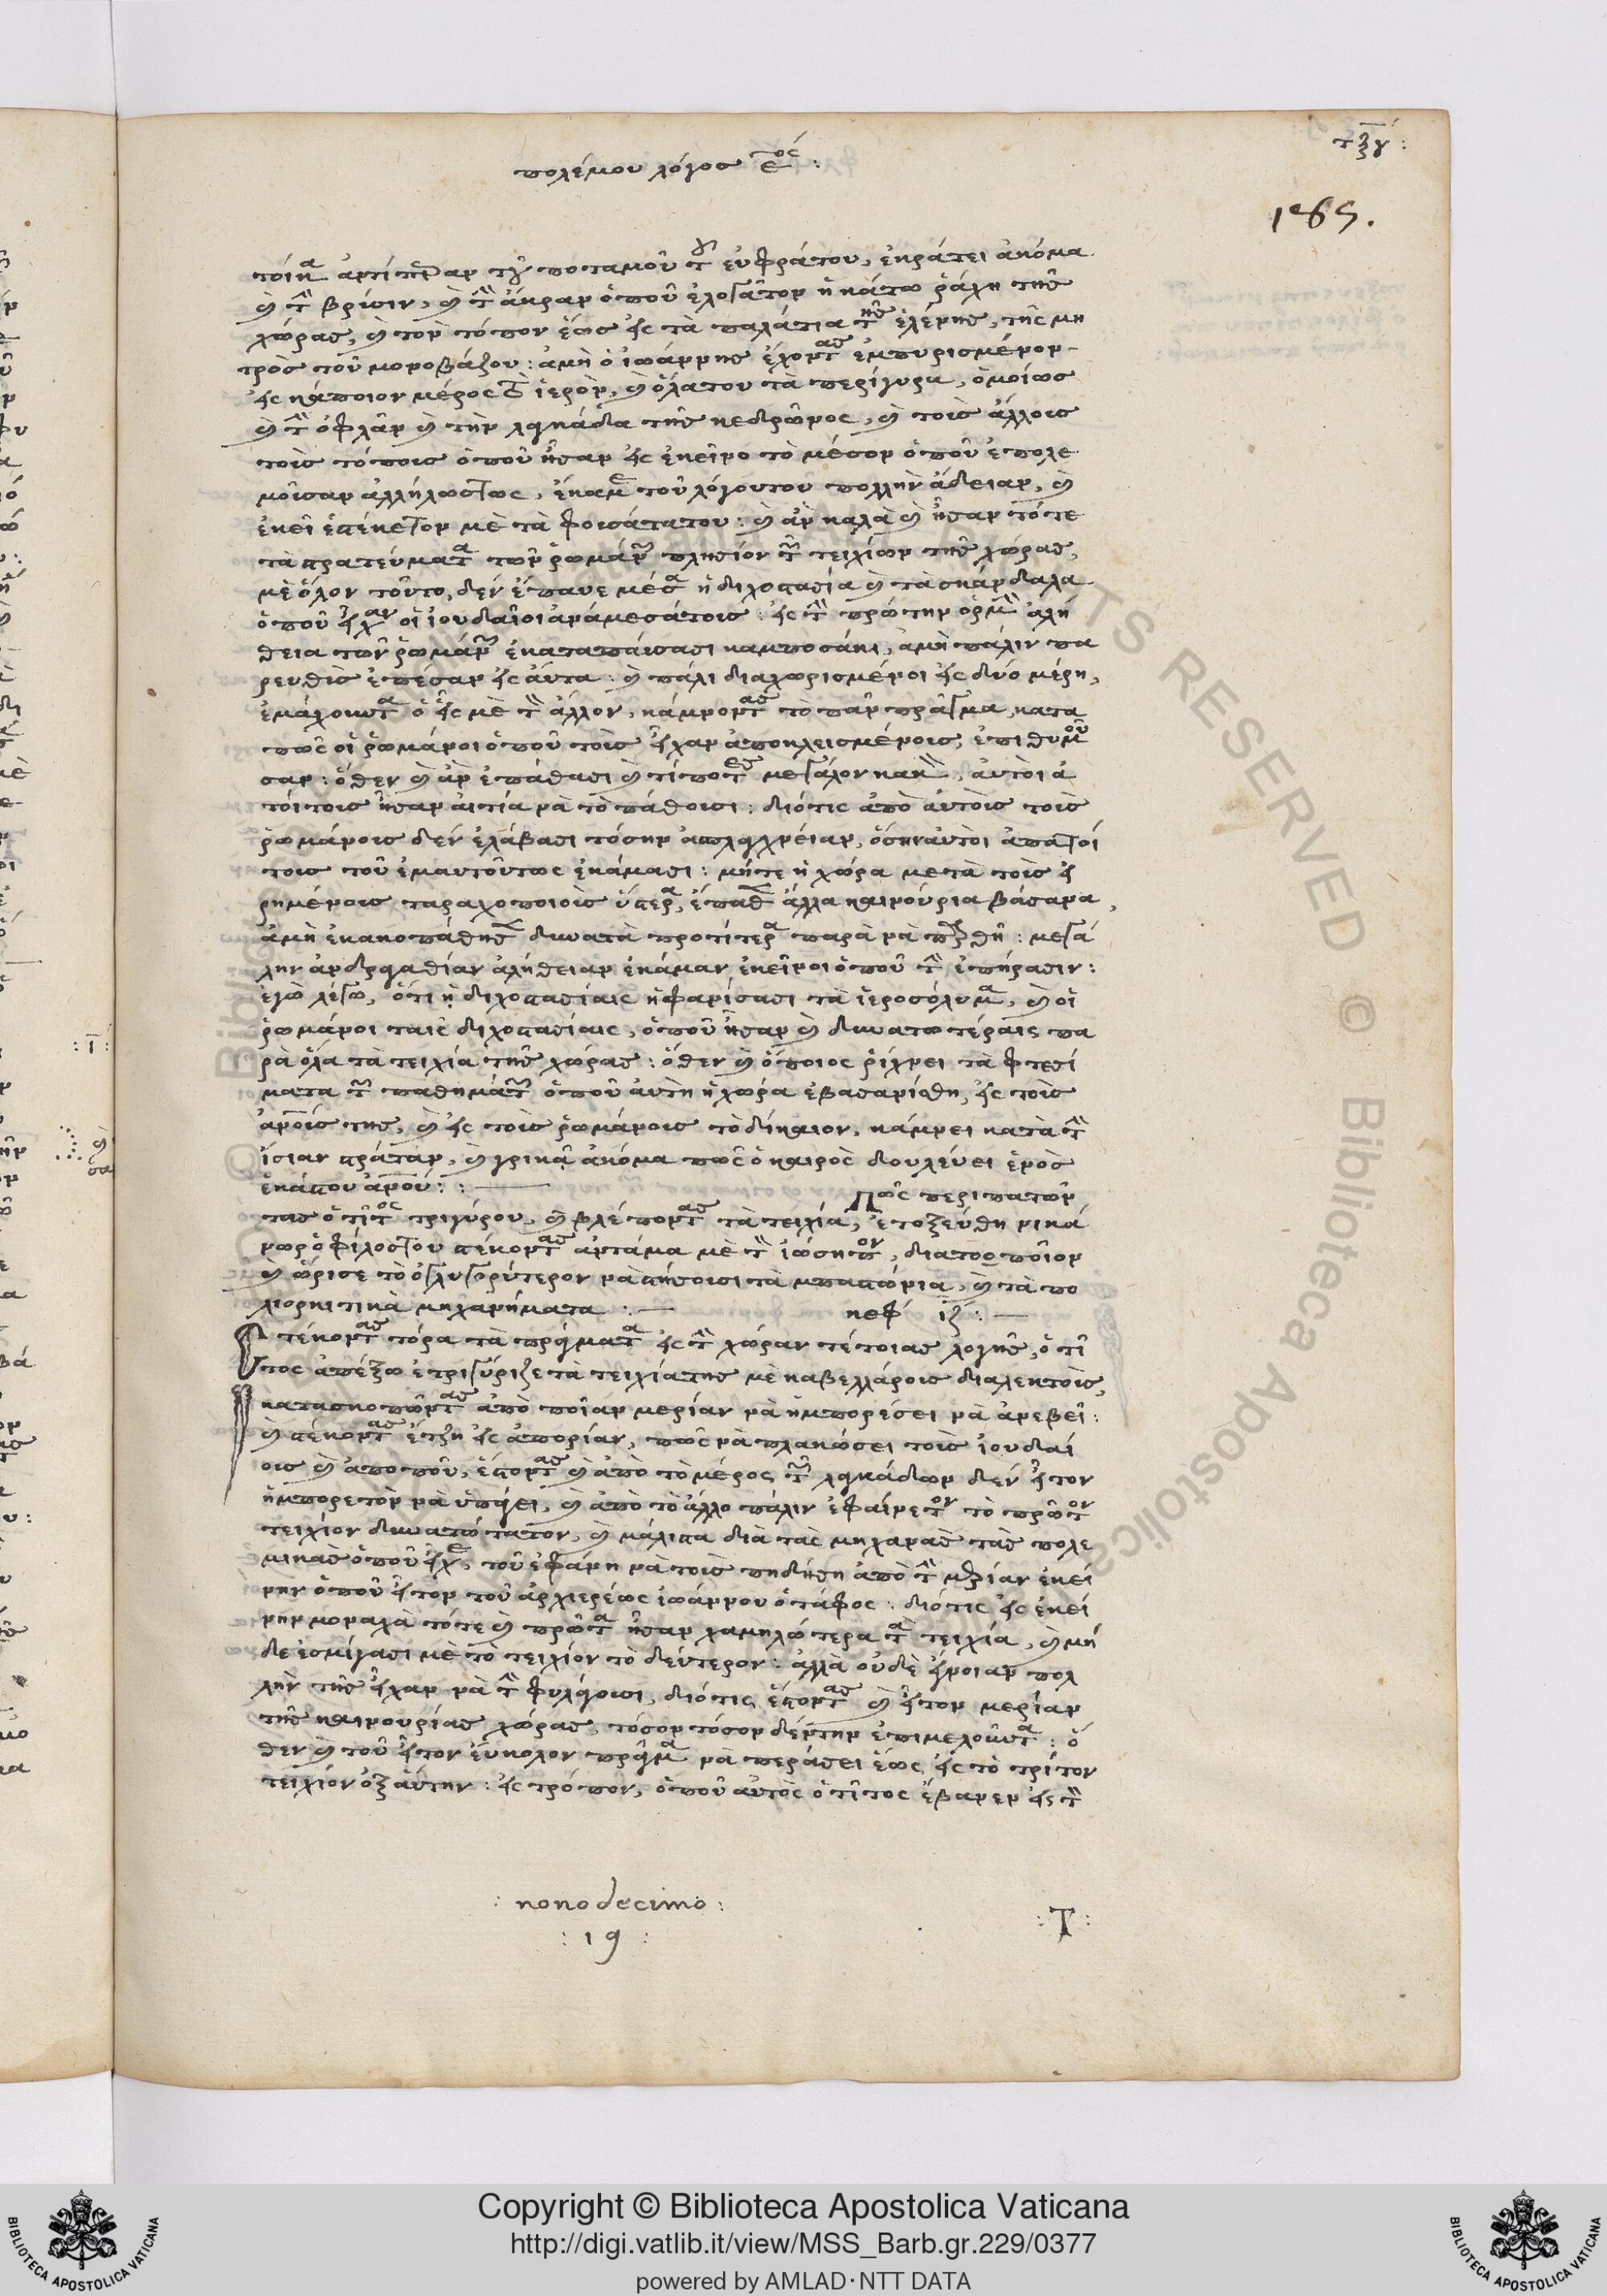 πολέμου λόγος ε^ος :
τξγ :
185.
ἀντίπεραν τοῦ ποταμοῦ τοῦ εὐφράτου, ἐκράτει ἀκόμα
καὶ τὴν βρύσιν, καὶ τὴν ἄκραν ὁποῦ ἐλογᾶτον ἡ κάτω ῥάχη τῆς
χώρας, καὶ τὸν τόπον ἕως εἰς τὰ παλάτια τῆς ἑλένης, τῆς μη
τρὸς τοῦ μονοβάζου : ἀμὴ ὁ ἰωάννης ἔχοντας ἐμπυρισμένον
εἰς κάποιον μέρος τὸ ἱερὸν, καὶ ὅλα του τὰ περίγυρα, ὁμοίως
καὶ τὴν ὀφλᾶν καὶ τὴν λαγκάδα τῆς κεδρῶνος, καὶ τοὶς ἄλλοις
τοὶς τόποις ὁποῦ ἦσαν εἰς ἐκεῖνο τὸ μέσον ὁποῦ ἐπολε
μοῖσαν ἀλλήλως τως, ἔκαμε τοῦ λόγου του πολλὴν ἄδειαν, καὶ
ἐκεῖ ἐστέκετον μὲ τὰ φοισάτα του : καὶ ἂν καλὰ καὶ ἦσαν τότε
τὰ στρατεύματα τῶν ῥωμάνων πλησίον τῶν τειχίων τῆς χώρας,
μὲ ὅλον τοῦτο, δὲν ἔπαυε μέσα ἡ διχοστασία καὶ τὰ σκάνδαλα
ὁποῦ εἶχαν οἱ ἰουδαῖοι ἀνάμεσά τοις : εἰς τὴν πρώτην ὁρμὴν ἀλή
θεια τῶν ῥωμάνων ἐκαταπάυσασι καμποσάκι, ἀμὴ πάλιν πα
ρευθὶς ἐπέσαν εἰς αὐτα : καὶ πάλι διαχωρισμένοι εἰς δύο μέρη,
ἐμάχουντα ὁ εἷς μὲ τὸν ἄλλον, κάμνοντας τὸ πᾶν πρᾶγμα, κατα
πῶς οἱ ῥωμάνοι ὁποῦ τοὶς εἶχαν ἀποκλεισμένοις, ἐπιθυμοῦ
σαν : ὅθεν καὶ ἂν ἐπάθασι καὶ τίποτες μεγάλον κακὸν, αὐτοὶ ἀ
τοί τοις ἦσαν αἰτία νὰ τὸ πάθοισι : διότις ἀπὸ αὐτοὶς τοὶς
ῥωμάνοις δὲν ἐλάβασι τόσην ἀπλαχνείαν, ὅσην αὐτοὶ ἀπατοί
τοις τοῦ ἐμαυτοῦ τως ἐκάμασι : μήτε ἡ χώρα μετὰ τοὶς εἰ
ρημένοις ταραχοποιοὶς ὕστερα, ἔπαθεν ἄλλα καινούρια βάσανα,
ἀμὴ ἐκακοπάθησεν δυνατὰ προτίτερα παρὰ νὰ παρθῆ : μεγά
λην ἀνδραγαθίαν ἀλήθειαν ἐκάμαν ἐκεῖνοι ὁποῦ τὴν ἐπήρασιν :
ἐγὼ λέγω, ὅτι ἡ διχοστασίαις ἠφανίσασι τὰ ἱεροσόλυμα, καὶ οἱ
ῥωμάνοι ταὶς διχοστασίαις, ὁποῦ ἦσαν καὶ δυνατωτέραις πα
ρὰ ὅλα τὰ τειχία τῆς χώρας : ὅθεν καὶ ὅποιος ῥίχνει τὰ φτεσί
ματα τῶν παθημάτων ὁποῦ αὐτὴ ἡ χώρα ἐβασανίσθη, εἰς τοὶς
ἀνθρώποις της, καὶ εἰς τοὶς ῥωμάνοις τὸ δίκαιον, κάμνει κατὰ τὴν
ἴσιαν στράταν, καὶ γρικᾶ ἀκόμα πῶς ὁ καιρὸς δουλεύει ἑνὸς
ἑκάστου ἀνθρώπου : : —
Πῶς περιπατῶν
τας ὁ τίτος τριγύρου, καὶ βλέποντας τὰ τειχία, ἐτοξεύθη νικά
νωρ ὁ φίλος του στέκοντας ἀντάμα μὲ τὸν ἰώσηπον, διατοοποῖον
καὶ ὥρισε τὸ ὀγλυγορύτερον νὰ στήσοισι τὰ μπαστιόρια, καὶ τὰ πο
λιορκιτικὰ μηχανήματα : — κεφ ιζ : —
Στέκοντας τόρα τὰ πράγματα εἰς τὴν χώραν τέτοιας λογῆς, ὁ τῖ
τος ἀπέξω ἐτριγύριζε τὰ τειχία της μὲ καβελλάροις διαλεκτοὶς,
κατασκοπῶντας ἀπὸ ποῖαν μερίαν νὰ ἠμπορέσει νὰ ἀνεβεῖ :
καὶ στέκοντας ἔτζη εἰς ἀπορίαν, πῶς νὰ πλακώσει τοὶς ἰουδαί
οις καὶ ἀποποῦ, ἔστοντας καὶ ἀπὸ τὸ μέρος τῶν λαγκάδων δὲν εἶτον
ἠμπορετὸν νὰ ὑπάγει, καὶ ἀπὸ τὸ ἄλλο πάλιν ἐφαίνετον τὸ πρῶτον
τειχίον δυνατώτατον, καὶ μάλιστα διὰ τὰς μηχανὰς τὰς πολε
μικὰς ὁποῦ εἶχε, τοῦ ἐφάνη νὰ τοὶς πηδήση ἀπὸ τὴν μερίαν ἐκεί
νην ὁποῦ εἶτον τοῦ ἀρχιερέως ἰωάννου ὁ τάφος : διότις εἰς ἐκεί
νην μοναχὰ τότε καὶ πρῶτα ἦσαν χαμηλώτερα τὰ τειχία, καὶ μή
δε ἐσμίγασι μὲ τὸ τειχίον τὸ δεύτερον : ἀλλὰ οὐδὲ ἔννοιαν πολ
λὴν τῆς εἶχαν νὰ τὴν φυλάγοισι, διότις ἔστοντας καὶ εἶτον μερίαν
τῆς καινουρίας χώρας, τόσον τόσον δὲν τὴν ἐπιμελοῦντα : ὅ
θεν καὶ τοῦ εἶτον εὔκολον πρᾶγμα νὰ περάσει ἕως εἰς τὸ τρίτον
τειχίον ὀξ αὔτην : εἰς τρόπον, ὁποῦ αὐτὸς ὁ τῖτος ἔβανεν εἰς τὴν
: nono decimo :
: 19 :
: T :
© Biblioteca Apostolica Vaticana
Copyright © Biblioteca Apostolica Vaticana
http://digi.vatlib.it/view/MSS_Barb.gr.229/0377
powered by AMLAD·NTT DATA
BIBLIOTECA APOSTOLICA VATICANA
BIBLIOTECA APOSTOLICA VATICANA